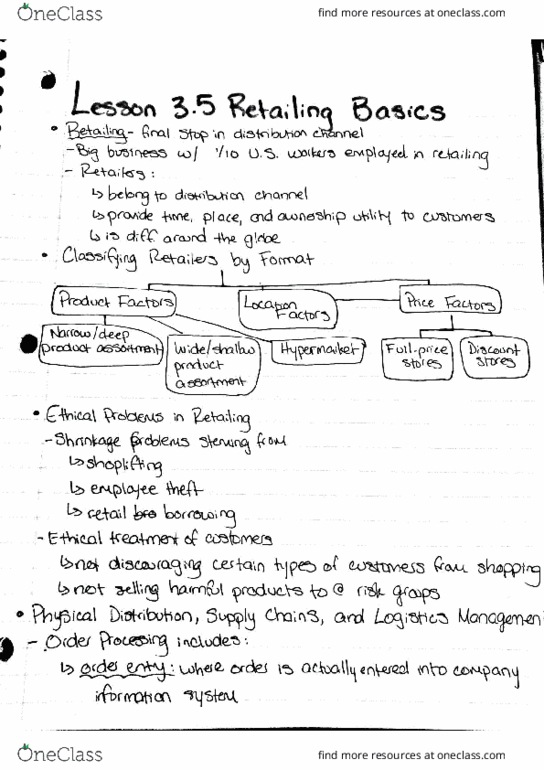 OneClass
find more resources at oneclass.com
Lesson 3.5 Retailing Basics
• Retailing- final stop in distribution channel
-Big business w/ 1/10 U.S. workers employed in retailing
- Retailers:
↳ belong to distribution channel
↳ provide time, place, and ownership utility to customers
↳ is diff. around the globe
• Classifying Retailers by Format
Product Factors
Location
Factors
Price Factors
Narrow/deep
product assortment
Wide/shallow
product
assortment
Hypermarket
Full-price
stores
Discount
stores
• Ethical Problems in Retailing
-Shrinkage problems steming from
↳ shoplifting
↳ employee theft
↳ retail bro borrowing
- Ethical treatment of customers
↳ not discouraging certain types of customers from shopping
↳ not selling harmful products to @ risk groups
• Physical Distribution, Supply Chains, and Logistics Managemen
- Order Processing includes:
↳ order entry: where order is actually entered into company
information system
OneClass
find more resources at oneclass.com